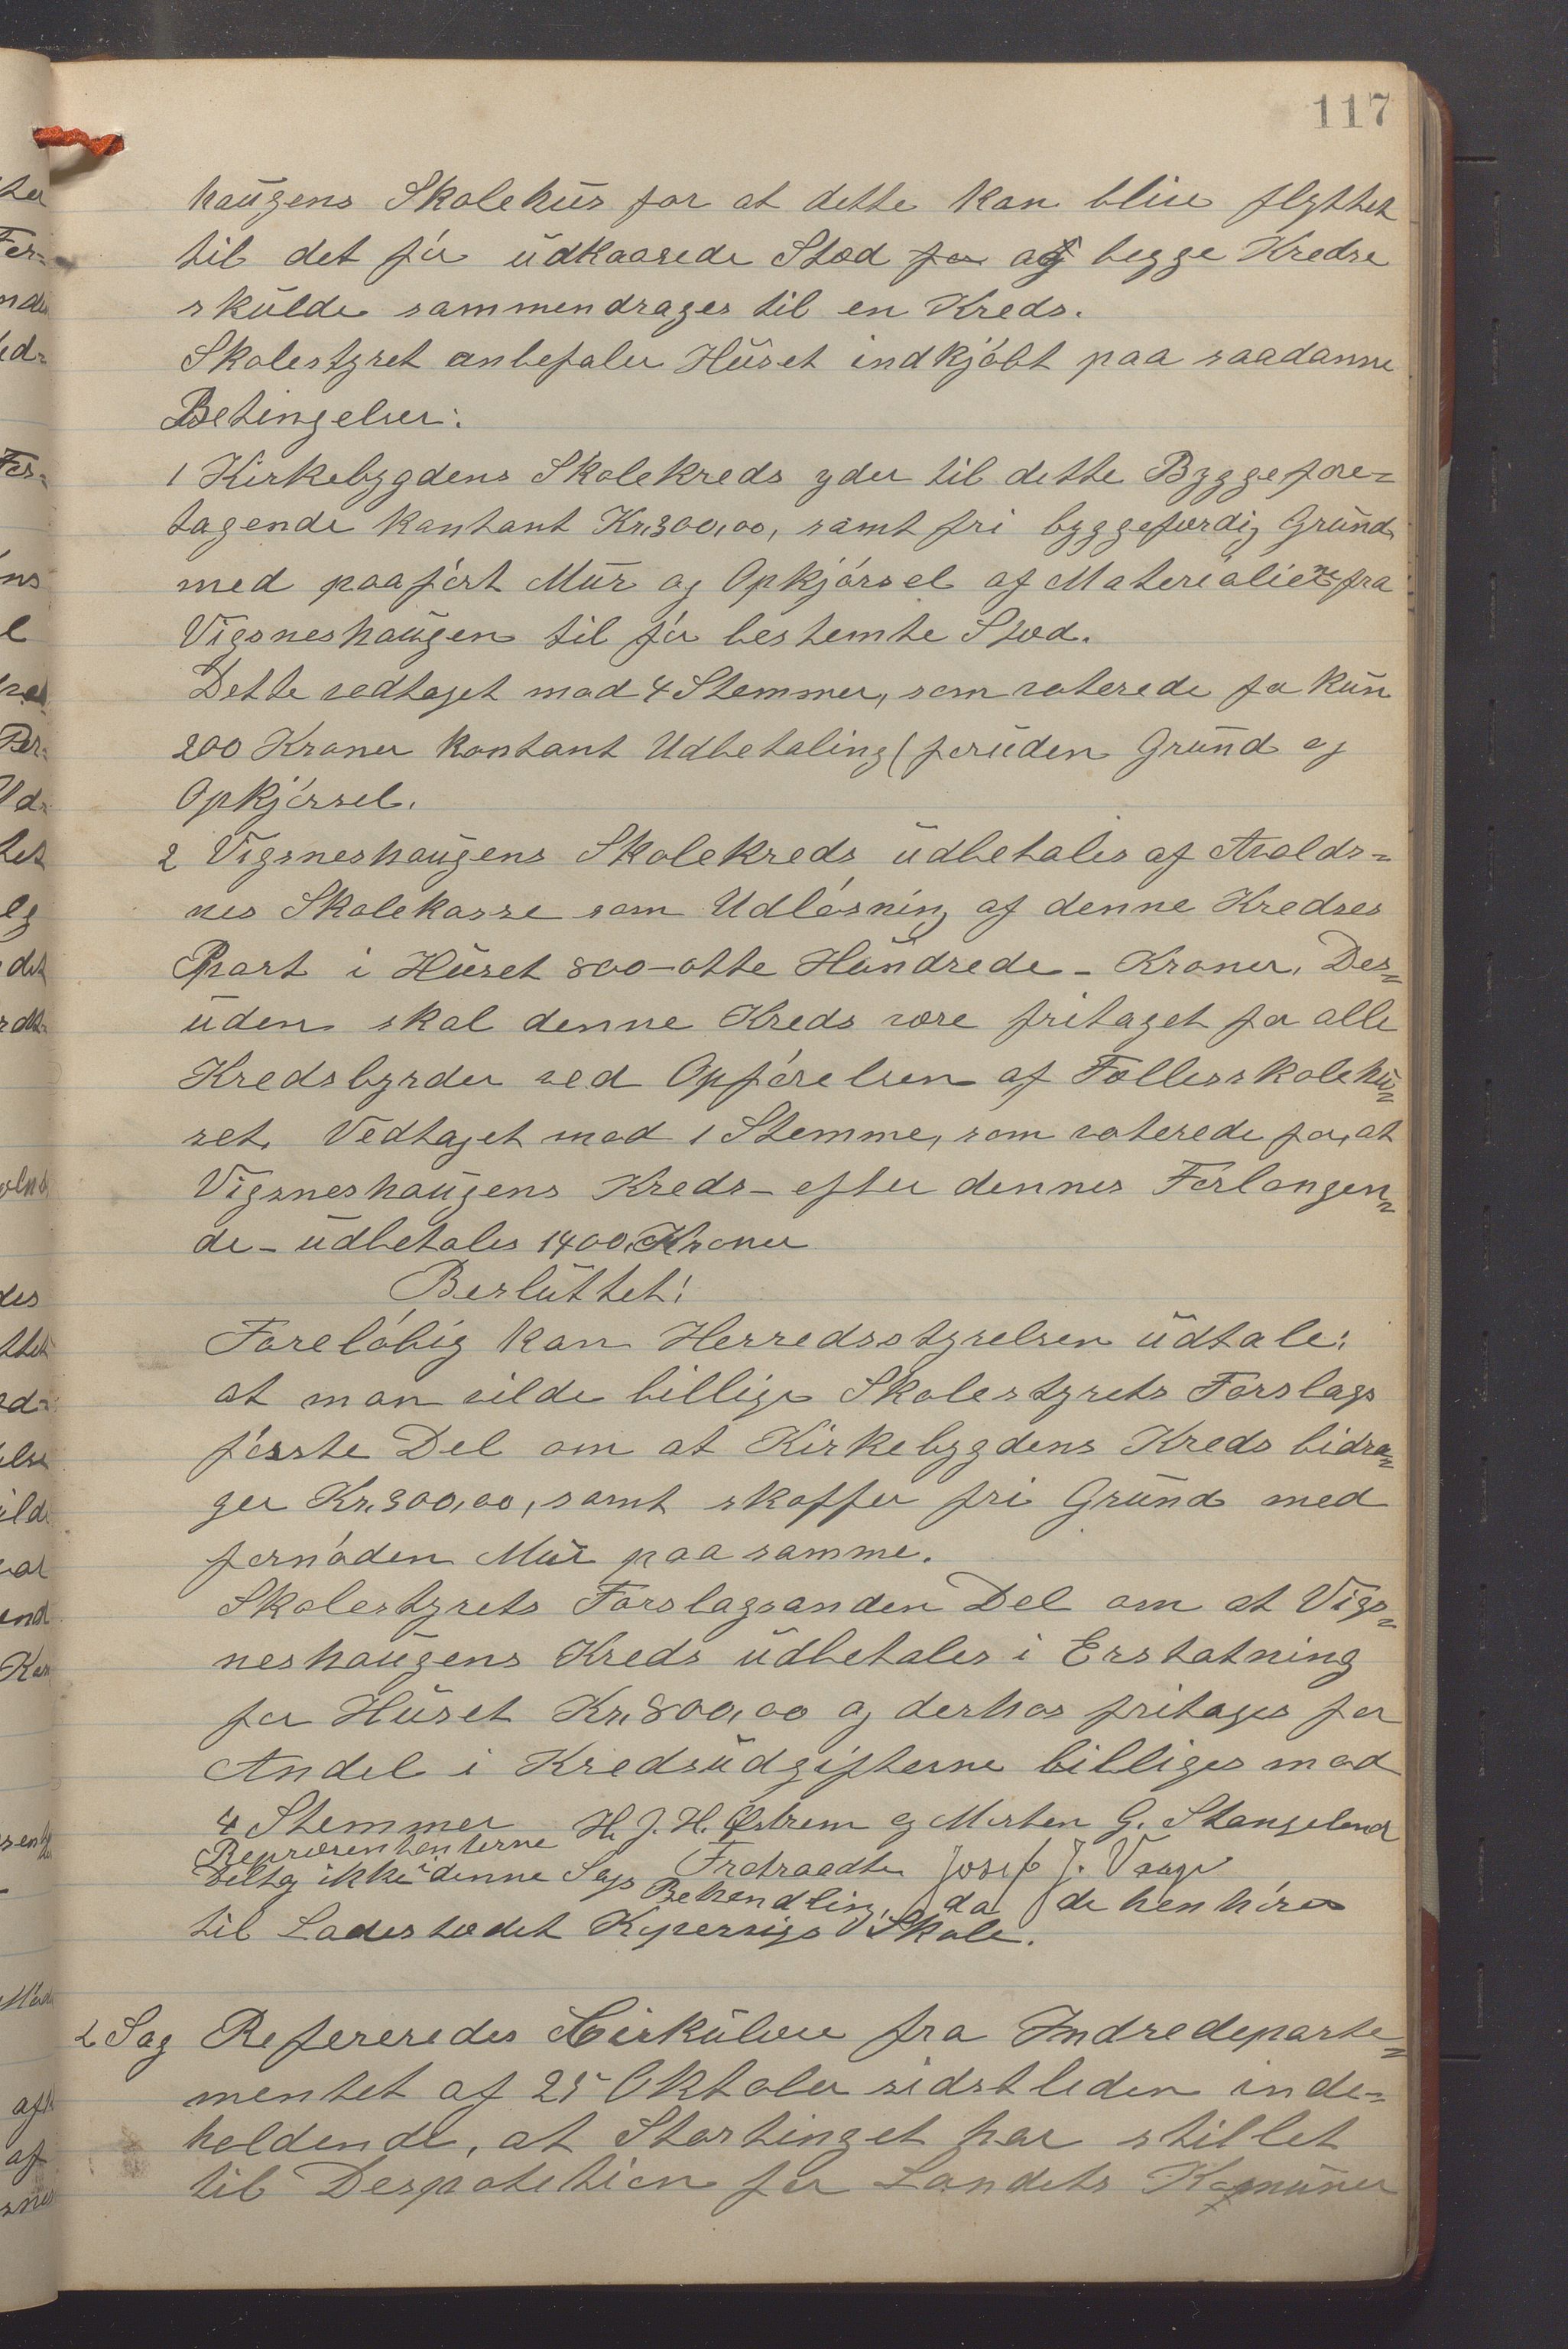 117
haugens Skolehus for at dette kan blive flyttet
til det før udkaarede Sted for og begge Kredse
skulde sammendrages til en Kreds.
Skolestyret anbefaler Huset indkjøbt paa saadanne
Betingelser:
1 Kirkebygdens Skolekreds yder til dette Byggefore=
tagende kontant Kr. 300,00, samt fri byggefærdig Grund
med paaført Mur og Opkjørsel af Materialierne fra
Vigsneshaugen til før bestemte Sted.
Dette vedtaget mod 4 Stemmer, som voterede for kun
200 Kroner kontant Udbetaling (foruden Grund og
Opkjørsel.
2 Vigsneshaugens Skolekreds udbetales af Avalds=
nes Skolekasse som Udløsning af denne Kredses
Part i Huset 800 - otte Hundrede - Kroner. Des=
uden skal denne Kreds være fritaget for alle
Kredsbyrder ved Opførelsen af Fællesskolehu=
set. Vedtaget mod 1 Stemme, som voterede for, at
Vigsneshaugens Kreds - efter dennes Forlangen=
de - udbetales 1400, Kroner
Besluttet:
Foreløbig kan Herredsstyrelsen udtale:
at man vilde billige Skolestyrets Forslags
første Del om at Kirkebygdens Kreds bidra=
ger Kr. 300,00, samt skaffer fri Grund med
fornøden Mur paa samme.
Skolestyrets Forslags anden Del om at Vigs=
neshaugens Kreds udbetales i Erstatning
for Huset Kr. 800,00 og derhos fritages for
Andel i Kredsudgifterne billiges mod
4 Stemmer H. J. H. Østrem og Morten G. Stangeland
Fratraadte Josef J. Vaage
Repræsentanterne
deltog ikke i denne Sags Behandling, da de henhører
til Ladestedet Kopervigs Skole.
2 Sag Refereredes Cirkulære fra Indredeparte=
mentet af 25 Oktober sidstleden inde=
holdende, at Stortinget har stillet
til Desposition for Landets Komuner